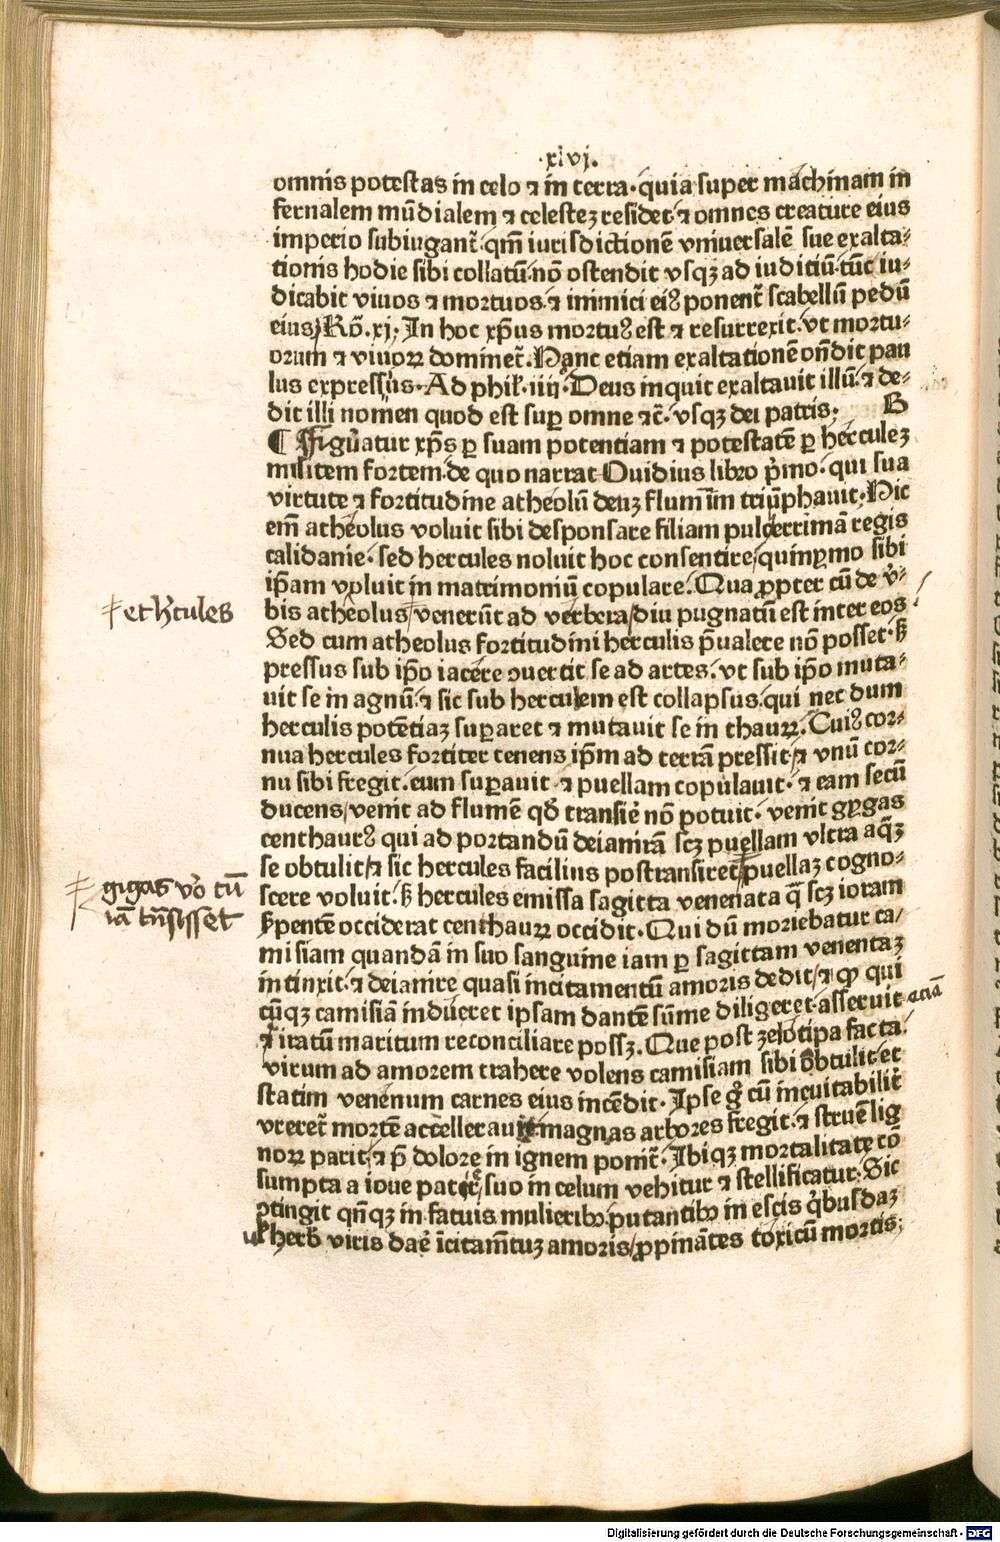 ·xlvj.
omnis potestas in celo ⁊ in terra·quia super machinam in
fernalem mūdialem ⁊ celesteꝫ residet·⁊ omnes creature eius
imperio subiugant̄·qm̄ iurisdictionē vniuersalē sue exalta-
tionis hodie sibi collatū·nō ostendit vsqꝫ ad iuditiū·tūc iu-
dicabit viuos ⁊ mortuos·⁊ inimici eiꝰ ponent̄ scabellū pedū
eius/Rō.xj; In hoc xp̄us mortuꝰ est ⁊ resurrexit·vt mortu-
orum ⁊ viuoꝝ dominet̄·Hanc etiam exaltationē on̄dit pau
lus expressius·Ad phil̄·iiij·Deus inquit exaltauit illū·⁊ de-
dit illi nomen quod est suꝑ omne ⁊c̄·vsqꝫ dei patris; B
¶ Figur̄atur xp̄s ꝑ suam potentiam ⁊ potestatē ꝑ herculeꝫ
militem fortem·de quo narrat Ouidius libro p̄mo·qui sua
virtute ⁊ fortitudine atheolū deuꝫ flumīm triūphauit·Hic
em̄ atheolus voluit sibi desponsare filiam pulcerrimā regis
calidanie·sed hercules noluit hoc consentire/quinpīmo sibi
ip̄am voluit in matrimoniū copulare·Qua ꝓpter cū de v̄-
bis atheolus/venerūt ad verbera/diu pugnatū est inter eos
⧧et h̄cules
Sed cum atheolus fortitudini herculis p̄ualere nō posset·ꝭ
pressus sub ip̄o iacere ↄuertit se ad artes·vt sub ip̄o muta-
uit se in agnū·⁊ sic sub herculem est collapsus·qui nec dum
herculis potētiaꝫ suꝑaret ⁊ mutauit se in thauꝝ·Cuiꝰ cor-
nua hercules fortiter tenens ip̄m ad terrā pressit/⁊ vnū cor-
nu sibi fregit·eum suꝑauit·⁊ puellam copulauit·⁊ eam secū
ducens/venit ad flumē qd̄ transir̄e nō potuit·venit gygas
centhaurꝰ qui ad portandū deianirā scꝫ puellam vltra aq̄ꝫ
se obtulit/⁊ sic hercules facilius postransiret/puellaꝫ cogno-
⧧ gigas v̊o cū
iā trn̄sisset
scere voluit·ꝭ hercules emissa sagitta venenata q̄ scꝫ iotam
s̄pentē occiderat centhauꝝ occidit·Qui dū moriebatur ca/
misiam quandā in suo sanguine iam ꝑ sagittam venentaꝫ
intinxit·⁊ deianire quasi incitamentū amoris dedit/⁊ ꝙ qui
cūqꝫ camisiā induēret ipsam dantē sūme diligeret·asseruit
⁊ iratum maritum reconciliare possꝫ·Que post zelotipa facta
virum ad amorem trahere volens camisiam sibi obtulit·et
statim venenum carnes eius incēdit·Ipse g̊ cū ineuitabilit̄
vreret̄ mortē accellerauit magnas arbores fregit·⁊ struē lig
noꝝ parit/⁊ p̄ dolore in ignem ponit̄·Ibiqꝫ mortalitate cō
sumpta a ioue patre suo in celum vehitur ⁊ stellificatur·Sic
ꝯtingit qn̄qꝫ in fatuis mulieribꝰ putantibꝰ in escis q̊busdaꝫ
ul̄ herb̄ viris dar̄e īcitam̄tuꝫ amoris/ꝓpināces toxicū mortis;
Digitalisierung gefördert durch die Deutsche Forschungsgemeinschaft - DFG